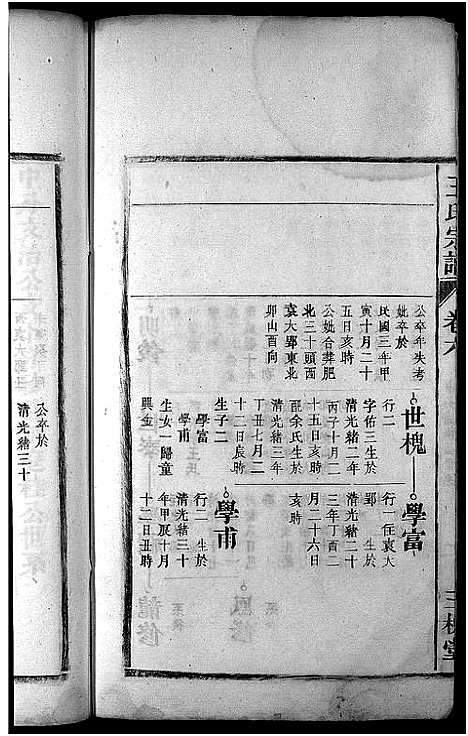 王氏宗譜
卷六
三槐堂
世槐
學富
公卒年失考
妣卒於
民國三年甲
寅十月二十
五日亥時
公妣合葬肥
北三十頭西
袁大郢東北
卯山酉向
行二
字佑三生於
清光緒二年
丙子十月二
十五日亥時
配余氏生於
清光緒三年
丁丑七月二
十二日辰時
生子二
學富
學甫
生女一歸童
興金
行一住袁大
郢 生於
清光緒二十
三年丁酉二
月二十六日
亥時
學甫
行二 生於
清光緒三十
年甲辰十月
十二日丑時
公卒於
清光緒三十